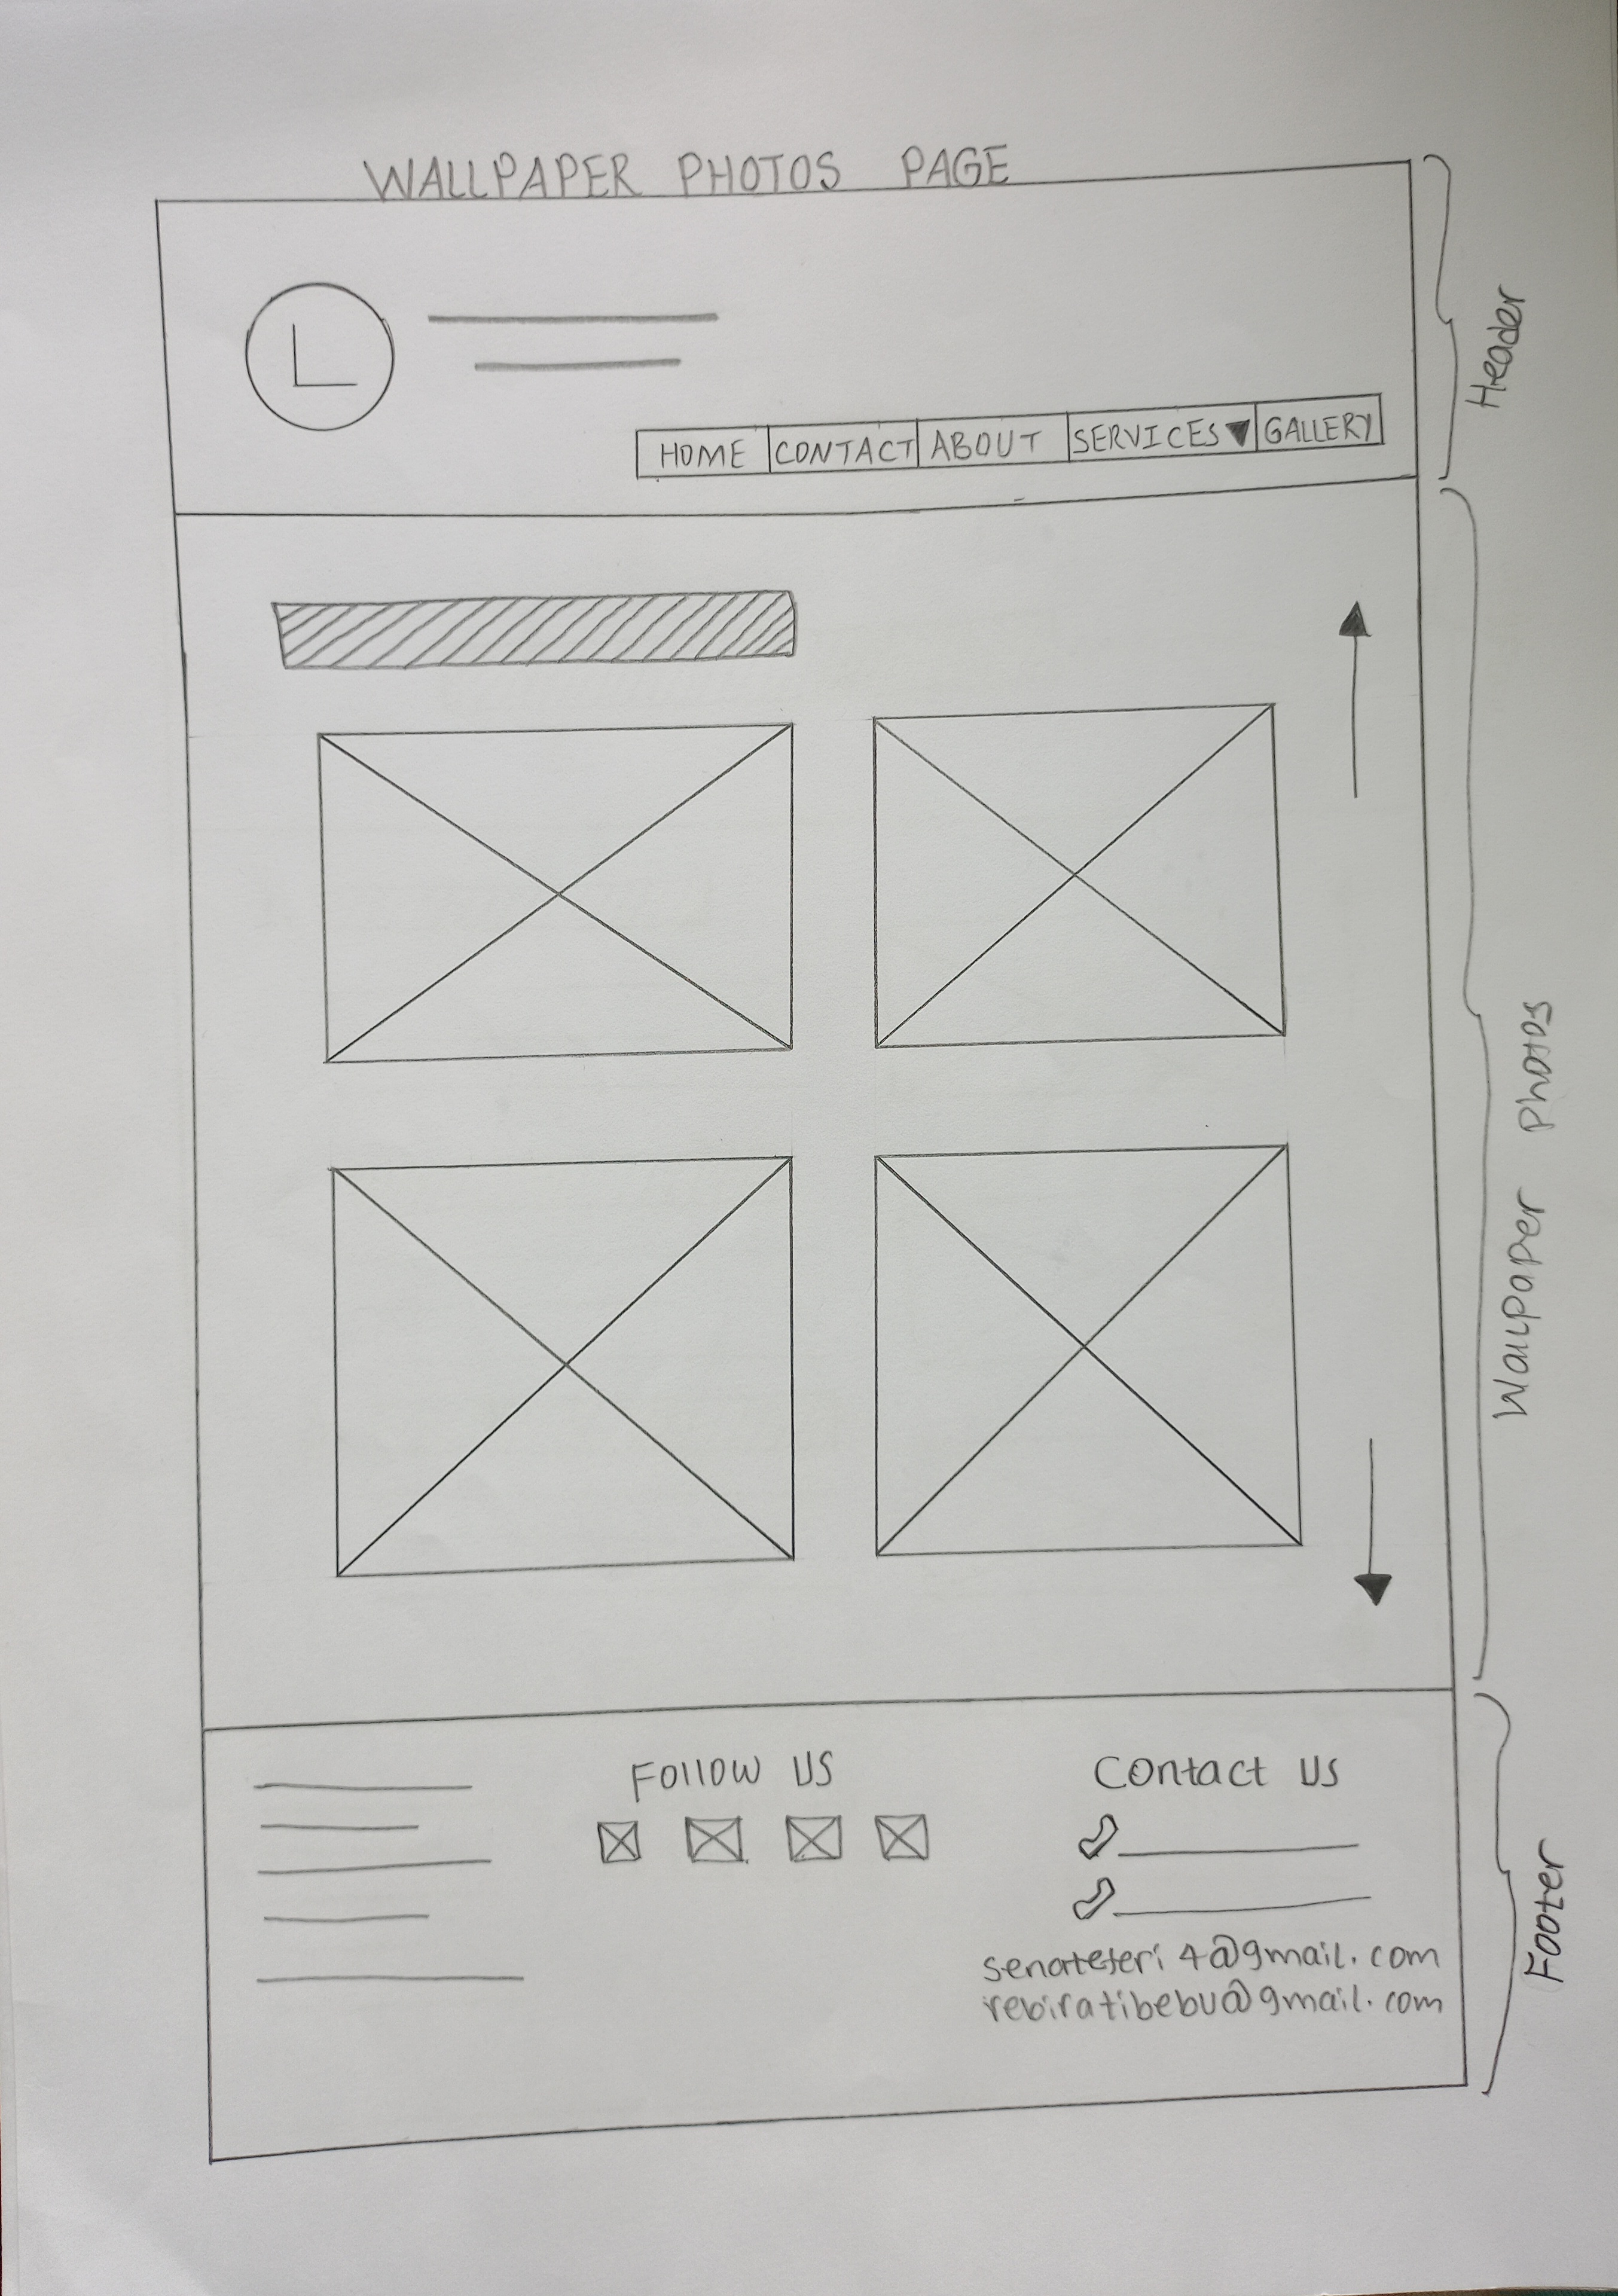 WALLPAPER PHOTOS PAGE
L
HOME CONTACT ABOUT SERVICES▼ GALLERY
Header
Wallpaper Photos
Follow US
Contact US
rebiratibebu@gmail.com
Footer